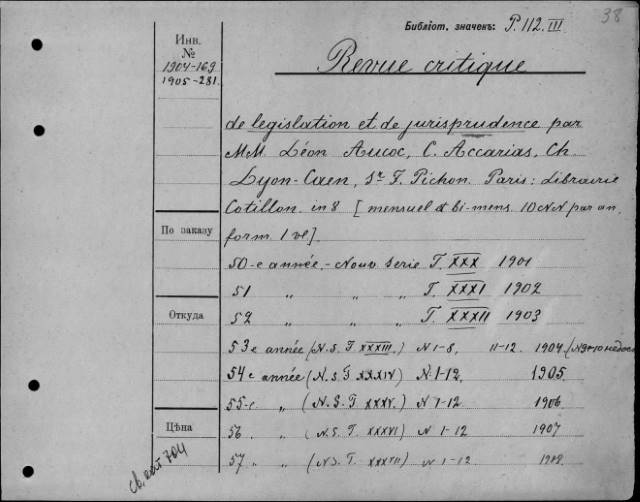 38
Библіот. значекъ: P. 112. III
Инв.
№
1904-169
1905-281.
Revue critique
de legislation et de jurisprudence par
MM. Léon Aucoc, C. Accarias, Ch
Lyon-Caen, F. Pichon. Paris: Librairie
Cotillon. in 8 [mensuel & bi-mens. 10 NN par an,
form. 1 vl].
По заказу
50-e année.-Nouv Serie T. XXX 1901
51 „ „ „ T. XXXI 1902
Откуда
52 „ „ „ T. XXXII 1903
53e année (N. S. T. XXXIII.) N 1-8, 11-12. 1904.
54e année (N. S. T. XXXIV) N. 1-12. 1905.
55-e. „ (N. S. T. XXXV.) N 1-12 1906
Цѣна
56. „ (N. S. T. XXXVI) N 1-12 1907
57. „ (N S. T. XXXVII) N 1-12 1908.
704